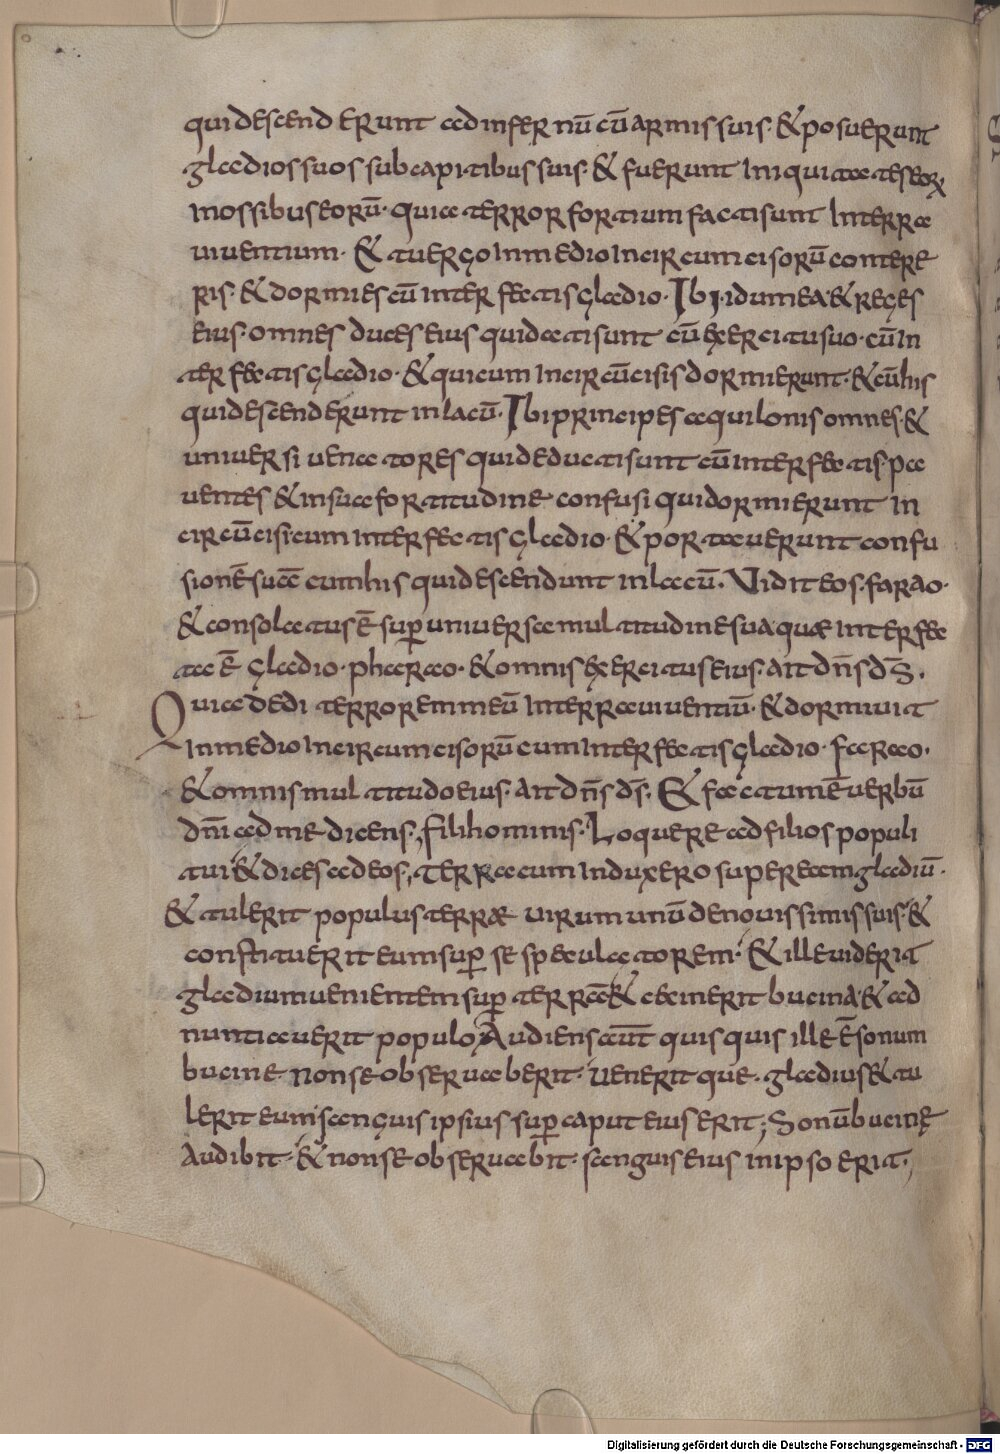 quidescenderunt ad infernū cū armis suis· & posuerunt
gladios suos sub capitibus suis· & fuerunt iniquitates eorꝝ
in ossibus eorū· quia terror fortium facti sunt In terra
viventium· & tu ergo In medio Incircumcisorū contere
ris· & dormies cū interfectis gladio· Ibi·idumea·& reges
eius·omnes duces eius qui dati sunt cū exercitu suo·cū In
terfectis gladio·& qui cum Incircūcisis dormierunt·& cū his
qui descenderunt in lacū· Ibi principes aquilonis omnes·&
universi venatores qui deducti sunt cū interfectis pa
ventes & in sua fortitudine confusi qui dormierunt in
circūcisi cum interfectis gladio·& portaverunt confu
sionē suā cum his qui descendunt in lacū· Vidit eos·farao·
& consolatus ē sup̄ universa multitudine sua·quæ interfec
ta ē gladio·pharao·& omnis exercitus eius·ait dn̄s ds̄·
Quia dedi terrorem meū In terra viventiū·& dormivit
In medio Incircumcisorū cum interfectis gladio·farao·
& omnis multitudo eius·ait dn̄s ds̄· Et factum ē verbū
dn̄i ad me dicens; fili hominis· Loquere ad filios populi
tui & dices ad eos; Terra cum Induxero super eam gladiū·
& tulerit populus terræ virum unū de novissimis suis·&
constituerit eum sup̄ se speculatorem· & ille viderit
gladium venientem sup̄ terrā & cecinerit bucina·& ad
nuntiaverit populo Audiens aūt quisquis ille ē sonum
bucine· non se observaberit· venerit que· gladius & tu
lerit eum; sanguis ipsius sup̄ caput eius erit; Sonū bucinę
Audibit·& non se observabit· sanguis eius in ipso erit·,
Digitalisierung gefördert durch die Deutsche Forschungsgemeinschaft - DFG